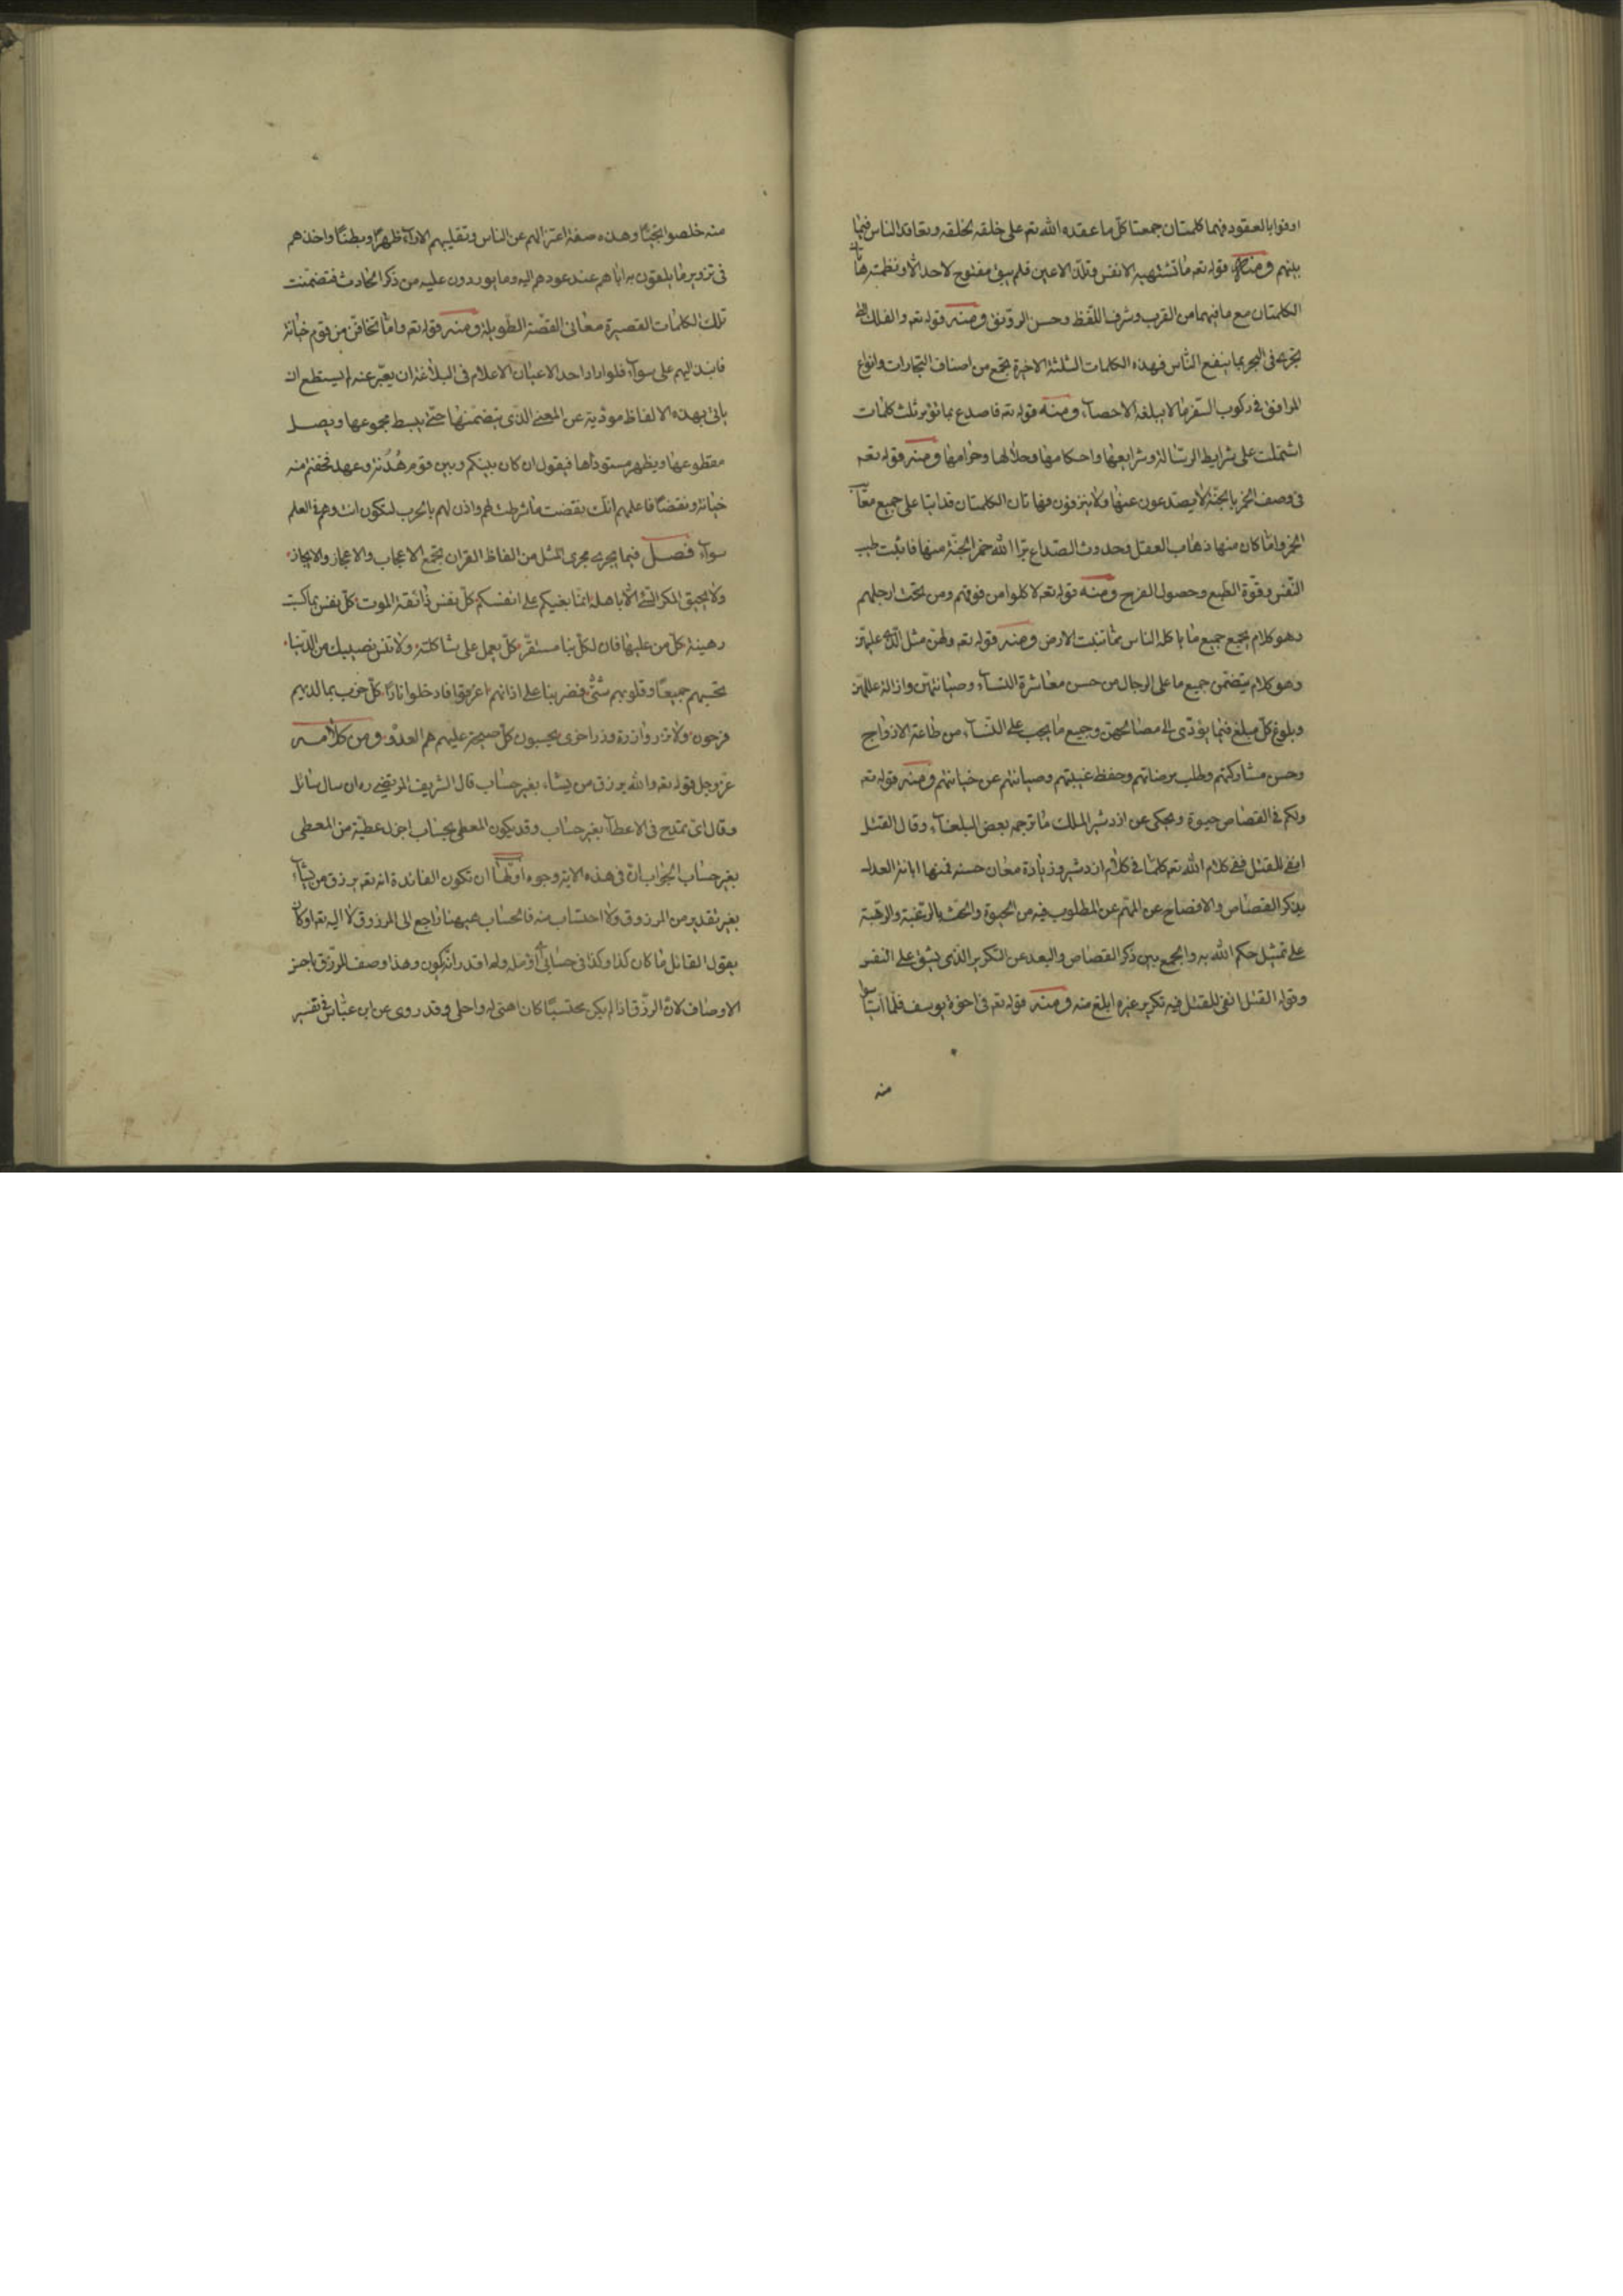 اوفوا بالعقود فهما كلمتان جمعتا كلّ ما عقده الله تعه على خلقه لخلقه وتعاقد الناس فيما
بينهم ومنه قوله تعه ما تشتهيه الانفس وتلذّ الاعين فلم يبق مقترح لاحد الّا ونظمته هاتان
الكلمتان مع ما فيهما من القرب وشرف اللفظ وحسن الرونق ومنه قوله تعه والفلك التي
تجرى فى البحر بما ينفع الناس فهذه الكلمات الثلثة الاخيرة تجمع من اصناف التجارات وانواع
المرافق فى ركوب السفر ما لا يبلغه الاحصاء ومنه قوله تعه فاصدع بما تؤمر ثلث كلمات
اشتملت على شرايط الرسالة وشرايعها واحكامها وحلالها وحرامها ومنه قوله تعه
فى وصف الخمر بالجنّة لا يصدعون عنها ولا ينزفون فهاتان الكلمتان قد اتتا على جميع معاني
الخمر واما كان منها ذهاب العقل وحدوث الصداع برّا الله خمر الجنّة منها فاثبت طيب
النّفس وقوّة الطبع وحصول الفرح ومنه قوله تعه لاكلوا من فوقهم ومن تحت ارجلهم
وهو كلام يجمع جميع ما ياكله الناس مما تنبت الارض ومنه قوله تعه ولهنّ مثل الّذي عليهنّ
وهو كلام يتضمن جميع ما على الرجال من حسن معاشرة النساء وصيانتهنّ وازالة عللهنّ
وبلوغ كلّ مبلغ فيما يؤدّى الى مصالحهن وجميع ما يجب على النساء من طاعة الازواج
وحسن مشاركتهم وطلب مرضاتهم وحفظ غيبتهم وصيانتهم عن خيانتهم ومنه قوله تعه
ولكم فى القصاص حيوة ويحكى عن اردشير الملك ما ترجمه بعض البلغاء وقال القتل
انفى للقتل ففى كلام الله تعه كلما فى كلام اردشير وزيادة معان حسنة فمنها ابانة العدل
بذكر القصاص والافصاح عن المهم عن المطلوب فيه من الحيوة والحث بالرغبة والرهبة
على تمثيل حكم الله به والجمع بين ذكر القصاص والبعد عن التكرير الذى يشق على النفس
وقوله القتل انفى للقتل فيه تكرير غيره ابلغ منه ومنه قوله تعه فى اخوة يوسف فلما استيأسوا
منه
منه خلصوا نجيّا وهذه صفة اعتزالهم عن الناس وتقليبهم الاراء ظهرا وبطنا واخذهم
فى تزوير ما يلقون به اباهم عند عودهم اليه وما يوردون عليه من ذكر الحادث فتضمّنت
تلك الكلمات القصيرة معانى القصّة الطويلة ومنه قوله تعه وامّا تخافنّ من قوم خيانة
فانبذ اليهم على سواء فلو اراد احد الاعيان الاعلام فى البلاغة ان يعبّر عنه لم يستطع ان
ياتى بهذه الالفاظ مودّية عن المعنى الذى يتضمّنها حتى يبسط مجموعها ويصل
مقطوعها ويظهر مستورتها فيقول ان كان بينكم وبين قوم هُدنة وعهد فخفتم منه
خيانة ونقضا فاعلمهم انك نقضت ما شرطت لهم واذن لهم بالحرب لتكون انت وهم فى العلم
سواء فصل فيما يجرى مجرى المثل من الفاظ القران تجمع الاعجاب والاعجاز والايجاز
ولا يحيق المكر السّيّئ الّا باهله انما بغيكم على انفسكم كلّ نفس ذائقة الموت كلّ نفس بما كسبت
رهينة كلّ من عليها فان لكلّ نبا مستقرّ كلّ يعمل على شاكلته ولا تنس نصيبك من الدّنيا
تحسبهم جميعا وقلوبهم شتّى فضربنا على اذانهم اغرقوا فادخلوا نارا كلّ حزب بما لديهم
فرحون ولا تزر وازرة وزر اخرى يحسبون كلّ صيحة عليهم هم العدوّ ومن كلامه
عز وجل قوله تعه والله يرزق من يشاء بغير حساب قال الشريف المرتضى ره ان سال سائل
وقال اىّ تمدّح فى الاعطاء بغير حساب وقد يكون المعطى بحساب اجزل عطيّة من المعطى
بغير حساب الجواب انّ فى هذه الاية وجوه اوّلها ان تكون الفائدة انه تعه يرزق من يشاء
بغير تقدير من المرزوق ولا احتساب منه فالحساب ههنا راجع الى المرزوق لا اليه تعه او كان
يقول القائل ما كان كذا وكذا فى حسابى اى لم اؤمّله ولم اقدر انه يكون وهذا وصف للرزق باحسن
الاوصاف لانّ الرزق اذا لم يكن محتسبا كان اهنى له واحلى وقد روى عن ابن عبّاس فى تفسير